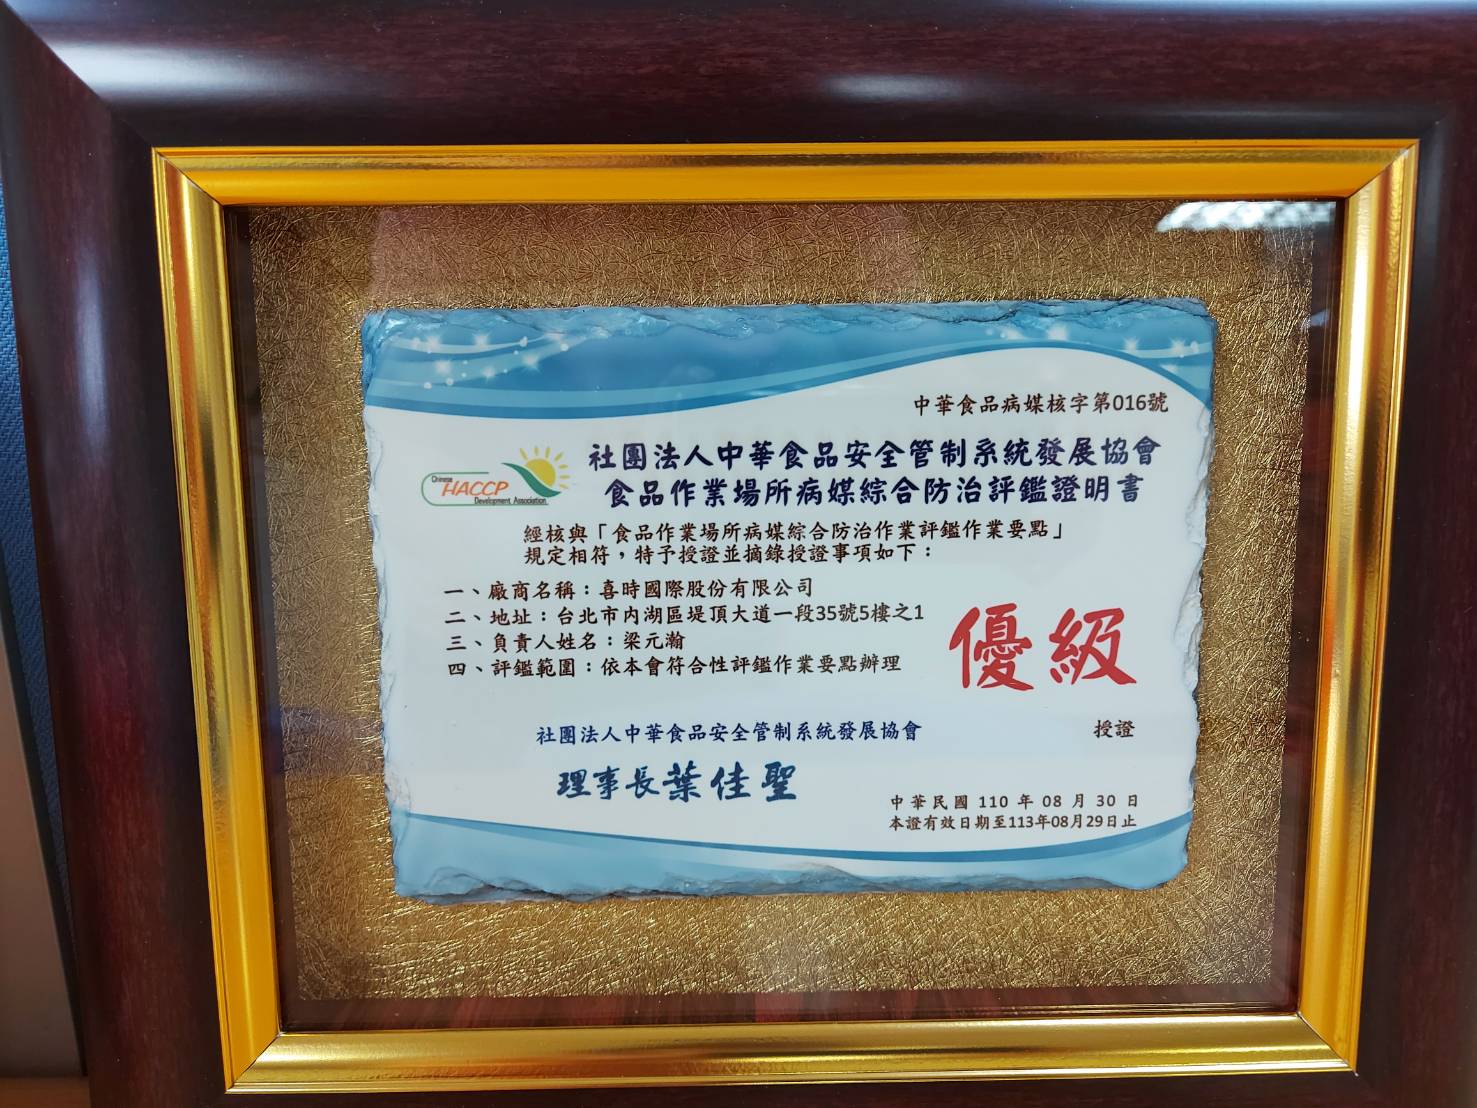 中華食品病媒核字第016號
社團法人中華食品安全管制系統發展協會
Chinese
HACCP
Development Association
食品作業場所病媒綜合防治評鑑證明書
經核與「食品作業場所病媒綜合防治作業評鑑作業要點」
規定相符，特予授證並摘錄授證事項如下：
一、廠商名稱：喜時國際股份有限公司
二、地址：台北市內湖區堤頂大道一段35號5樓之1
三、負責人姓名：梁元瀚
四、評鑑範圍：依本會符合性評鑑作業要點辦理
優級
社團法人中華食品安全管制系統發展協會
授證
理事長葉佳聖
中華民國 110 年 08 月 30 日
本證有效日期至113年08月29日止